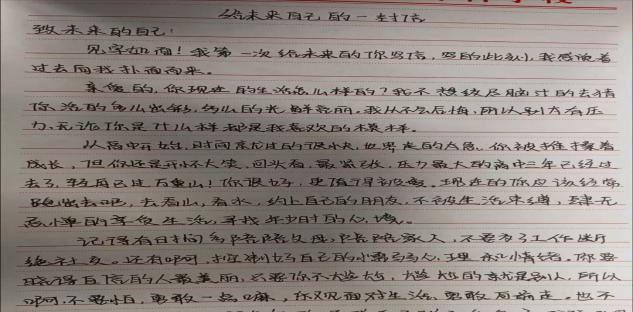 给未来自己的一封信
致未来的自己:
见字如面!我第一次给未来的你写信,写的此刻,我感觉着
过去向我扑面而来。
亲爱的,你现在的生活怎么样的?我不想绞尽脑汁的去猜
你活的多么出彩,多么的光鲜亮丽。我从不会后悔,所以别太有压
力,无论你是什么样都是我喜欢的模样。
从高中开始,时间总过的很快,世界走的太急。你被推搡着
成长,但你还是开怀大笑,回头看,最紧张,压力最大的高中三年已经过
去了,轻舟已过万重山!你很好,更值得被爱。现在的你应该经常
跑出去吧,去看山,看水,约上自己的朋友,不被生活束缚,肆无
忌惮的享受生活,寻找年少时的心境。
记得有时间多陪陪父母,陪陪家人,不要为了工作断
绝社交。还有啊,控制好自己的小情绪,理
晓得自信的人最美丽,只要你不尴尬,尴尬的就是别人,所以
啊,不要怕,勇敢一点嘛,你观面对生活,勇敢向前走。也不